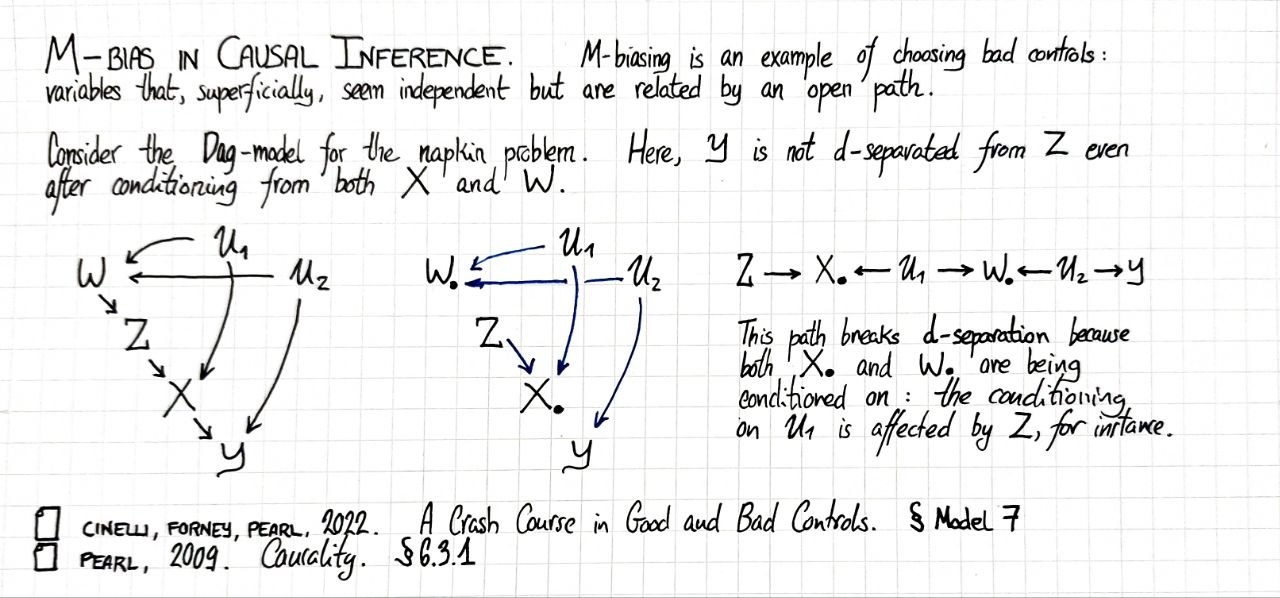 M-BIAS IN CAUSAL INFERENCE. M-biasing is an example of choosing bad controls:
variables that, superficially, seem independent but are related by an open path.
Consider the Dag-model for the napkin problem. Here, Y is not d-separated from Z even
after conditioning from both X and W.
W U₁ U₂ Z X Y
W. U₁ U₂ Z X. Y
Z → X. ← U₁ → W. ← U₂ → Y
This path breaks d-separation because
both X. and W. are being
conditioned on: the conditioning
on U₁ is affected by Z, for instance.
CINELLI, FORNEY, PEARL, 2022. A Crash Course in Good and Bad Controls. § Model 7
PEARL, 2009. Causality. §6.3.1